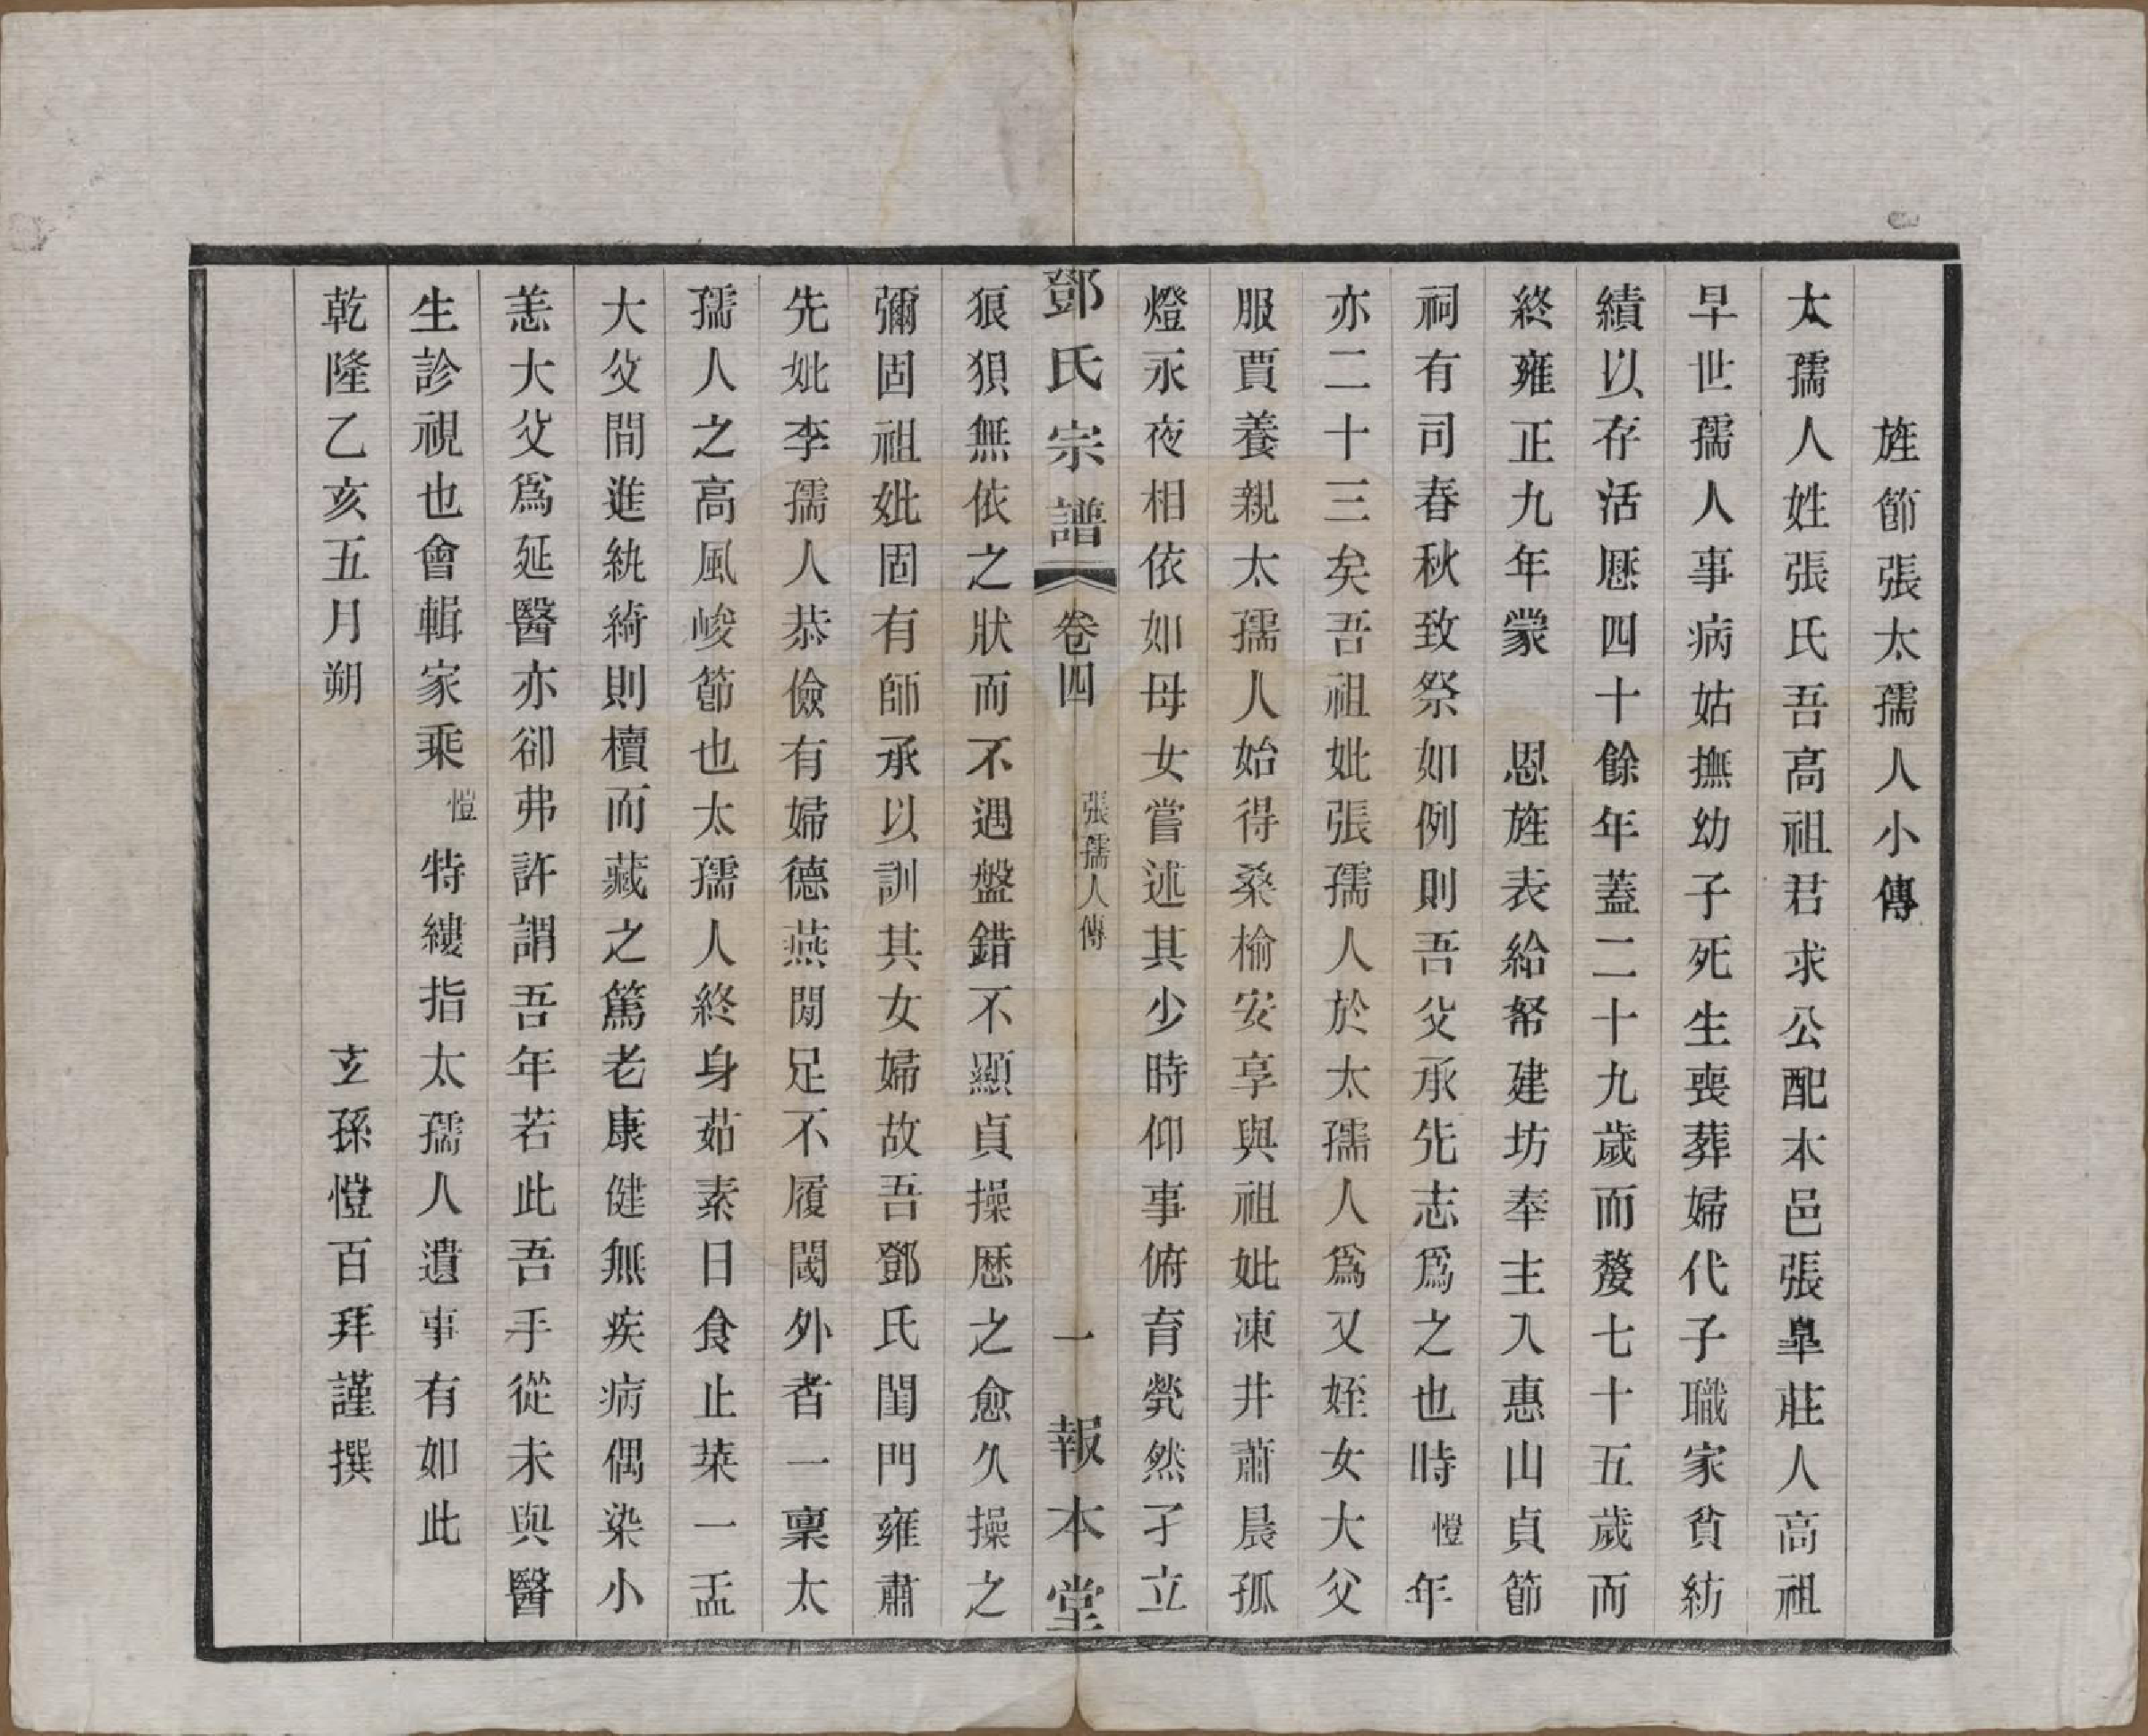 旌節張太孺人小傳
太孺人姓張氏吾高祖君求公配本邑張臯莊人高祖
早世孺人事病姑撫幼子死生喪葬婦代子職家貧紡
績以存活厯四十餘年蓋二十九歲而嫠七十五歲而
終雍正九年蒙 恩旌表給帑建坊奉主入惠山貞節
祠有司春秋致祭如例則吾父承先志爲之也時愷年
亦二十三矣吾祖妣張孺人於太孺人爲又姪女大父
服賈養親太孺人始得桑楡安享與祖妣凍井蕭晨孤
燈永夜相依如母女嘗述其少時仰事俯育煢然孑立
鄧氏宗譜 卷四 張孺人傳 一 報本堂
狼狽無依之狀而不遇盤錯不顯貞操歷之愈久操之
彌固祖妣固有師承以訓其女婦故吾鄧氏閨門雍肅
先妣李孺人恭儉有婦德燕閒足不履閾外者一稟太
孺人之高風峻節也太孺人終身茹素日食止菜一盂
大父間進紈綺則櫝而藏之篤老康健無疾病偶染小
恙大父爲延醫亦卻弗許謂吾年若此吾手從未與醫
生診視也會輯家乘愷特縷指太孺人遺事有如此
乾隆乙亥五月朔 玄孫愷百拜謹撰